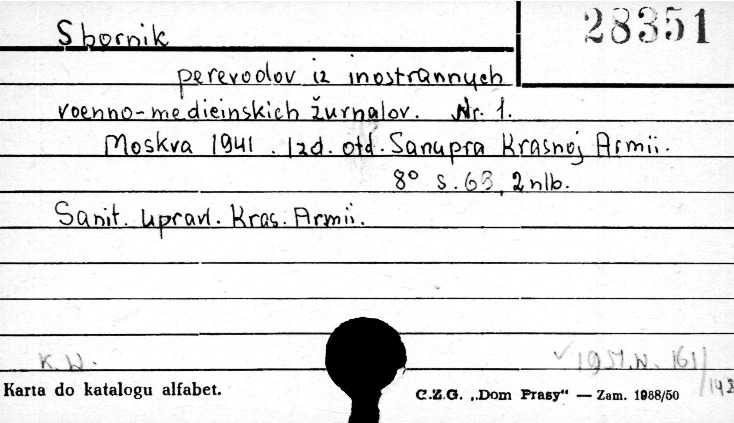 28351
Sbornik
perevodov iz inostrannych
voenno-medicinskich žurnalov. Nr. 1.
Moskva 1941. Izd. otd. Sanupra Krasnoj Armii.
8° s. 68, 2 nlb.
Sanit. upravl. Kras. Armii.
K. W. 1951.W. 161/
Karta do katalogu alfabet. C.Z.G. „Dom Prasy" — Zam. 1988/50